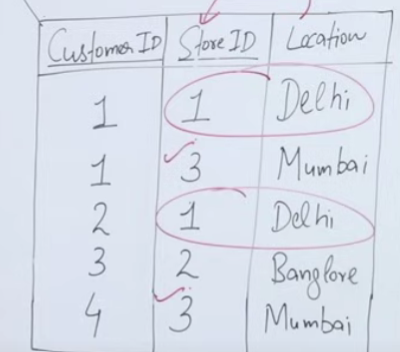 Customer ID Store ID Location
1 1 Delhi
1 3 Mumbai
2 1 Delhi
3 2 Banglore
4 3 Mumbai